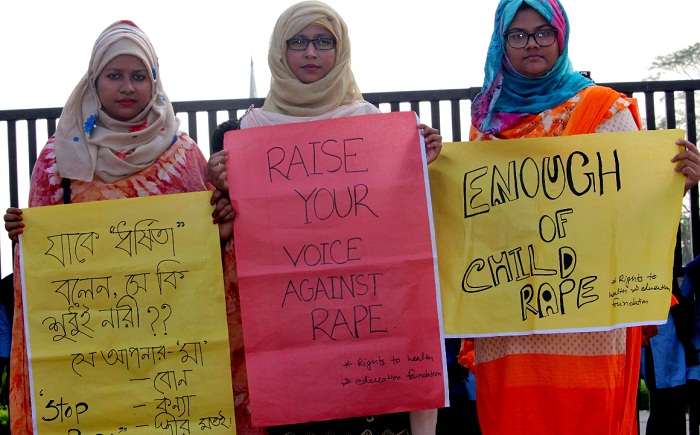 যাকে "ধর্ষিতা"
বলেন, সে কি
শুধুই নারী ??
সে আপনার-'মা'
— বোন
— কন্যা
"Stop
RAISE
YOUR
VOICE
AGAINST
RAPE
* Rights to health
> education foundation
ENOUGH
OF
CHILD
RAPE
* Rights to
health > education
foundation